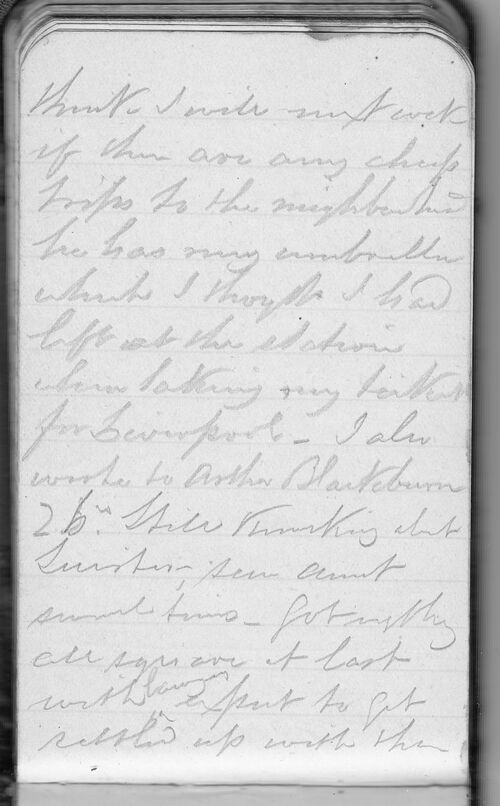 think I will next week
if there are any cheap
trips to the neighborhood
he has my umbrella
which I thought I had
left at the station
when taking my ticket
for Liverpool - I also
wrote to Arthur Blackburn
26th. Still knocking abt
Leicester, seen aunt
several times - Got everything
all square at last
with lawyers expect to get
settled up with them